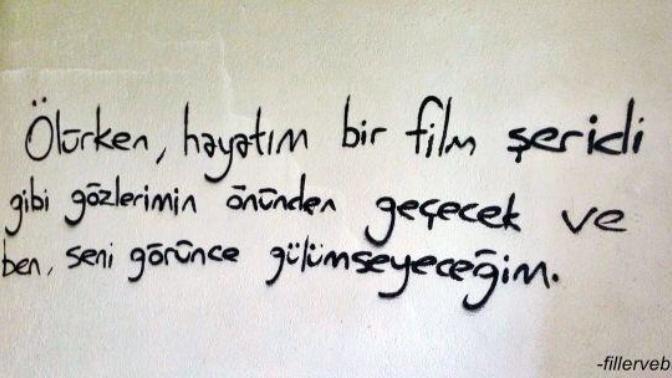 Ölürken, hayatım bir film şeridi
gibi gözlerimin önünden geçecek ve
ben, seni görünce gülümseyeceğim.
-fillerveb